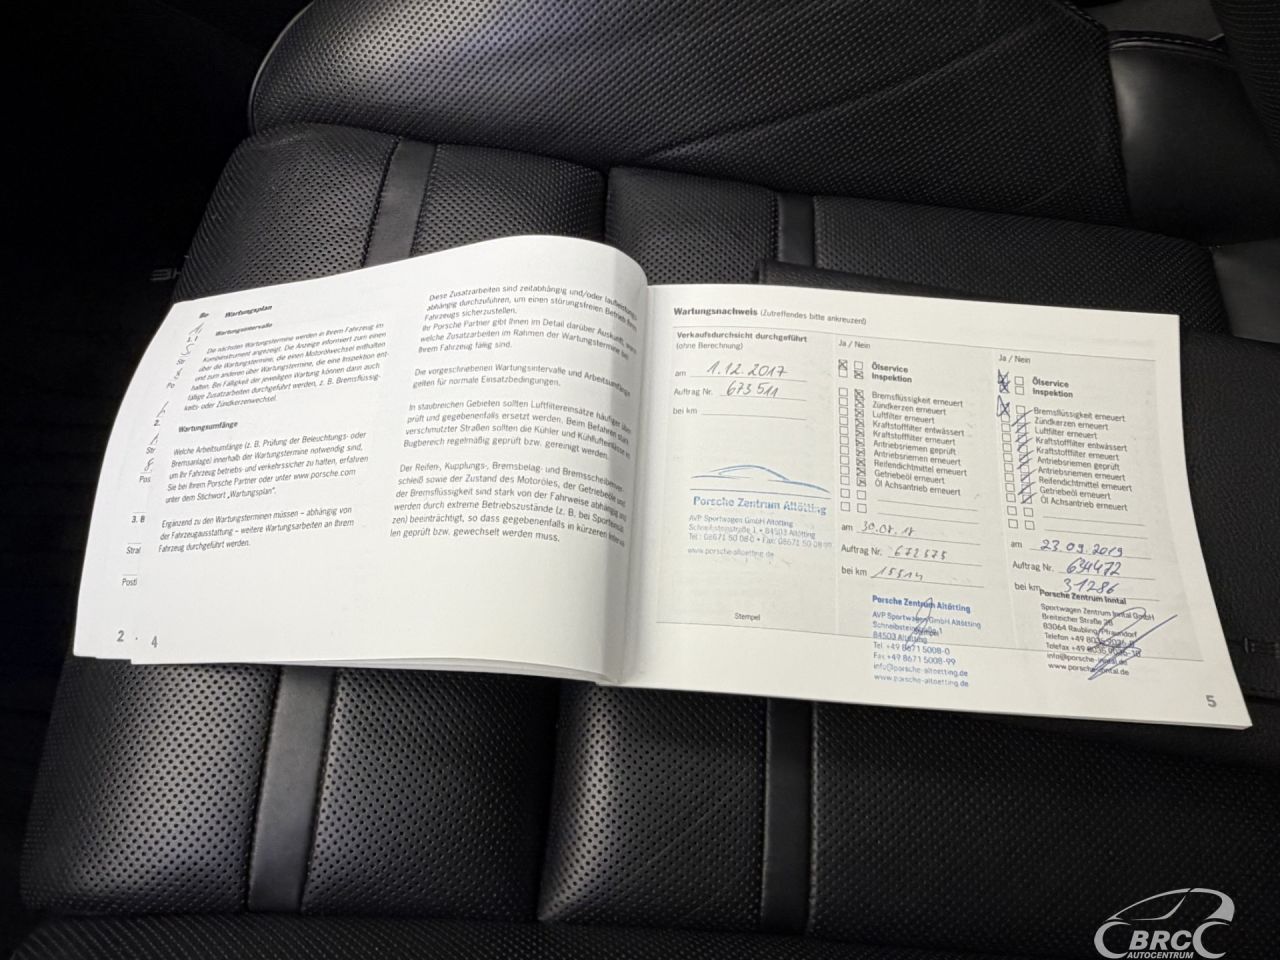 Wartungsplan
Wartungsintervalle
Die nächsten Wartungstermine werden in Ihrem Fahrzeug im
Kombiinstrument angezeigt. Die Anzeige informiert zum einen
über die Wartungstermine, die einen Motorölwechsel enthalten
und zum anderen über Wartungstermine, die eine Inspektion ent-
halten. Bei Fälligkeit der jeweiligen Wartung können dann auch
fällige Zusatzarbeiten durchgeführt werden, z. B. Bremsflüssig-
keits- oder Zündkerzenwechsel.
Wartungsumfänge
Welche Arbeitsumfänge (z. B. Prüfung der Beleuchtungs- oder
Bremsanlage) innerhalb der Wartungstermine notwendig sind,
um Ihr Fahrzeug betriebs- und verkehrssicher zu halten, erfahren
Sie bei Ihrem Porsche Partner oder unter www.porsche.com
unter dem Stichwort „Wartungsplan“.
Ergänzend zu den Wartungsterminen müssen – abhängig von
der Fahrzeugausstattung – weitere Wartungsarbeiten an Ihrem
Fahrzeug durchgeführt werden.
3. B
Stral
Postl
2
4
Diese Zusatzarbeiten sind zeitabhängig und/oder laufleistungs-
abhängig durchzuführen, um einen störungsfreien Betrieb Ihres
Fahrzeugs sicherzustellen.
Ihr Porsche Partner gibt Ihnen im Detail darüber Auskunft, wann
welche Zusatzarbeiten im Rahmen der Wartungstermine bei
Ihrem Fahrzeug fällig sind.
Die vorgeschriebenen Wartungsintervalle und Arbeitsumfänge
gelten für normale Einsatzbedingungen.
In staubreichen Gebieten sollten Luftfiltereinsätze häufiger über-
prüft und gegebenenfalls ersetzt werden. Beim Befahren stark
verschmutzter Straßen sollten die Kühler und Kühllufteinlässe im
Bugbereich regelmäßig geprüft bzw. gereinigt werden.
Der Reifen-, Kupplungs-, Bremsbelag- und Bremsscheibenver-
schleiß sowie der Zustand des Motoröles, der Getriebeöle und
der Bremsflüssigkeit sind stark von der Fahrweise abhängig und
werden durch extreme Betriebszustände (z. B. bei Sporteinsät-
zen) beeinträchtigt, so dass gegebenenfalls in kürzeren Intervallen
geprüft bzw. gewechselt werden muss.
Wartungsnachweis (Zutreffendes bitte ankreuzen!)
Verkaufsdurchsicht durchgeführt
(ohne Berechnung)
am 1.12.2017
Auftrag Nr. 673511
bei km
Porsche Zentrum Altötting
AVP Sportwagen GmbH Altötting
Schneibsteinstraße 1 • 84503 Altötting
Tel.: 08671 50 08-0 • Fax: 08671 50 08-99
www.porsche-altoetting.de
Stempel
Ja / Nein
Ölservice
Inspektion
Bremsflüssigkeit erneuert
Zündkerzen erneuert
Luftfilter erneuert
Kraftstofffilter entwässert
Kraftstofffilter erneuert
Antriebsriemen geprüft
Antriebsriemen erneuert
Reifendichtmittel erneuert
Getriebeöl erneuert
Öl Achsantrieb erneuert
am 30.07.18
Auftrag Nr. 672575
bei km 15514
Porsche Zentrum Altötting
AVP Sportwagen GmbH Altötting
Schneibsteinstraße 1
84503 Altötting
Stempel
Tel. +49 8671 5008-0
Fax +49 8671 5008-99
info@porsche-altoetting.de
www.porsche-altoetting.de
Ja / Nein
Ölservice
Inspektion
Bremsflüssigkeit erneuert
Zündkerzen erneuert
Luftfilter erneuert
Kraftstofffilter entwässert
Kraftstofffilter erneuert
Antriebsriemen geprüft
Antriebsriemen erneuert
Reifendichtmittel erneuert
Getriebeöl erneuert
Öl Achsantrieb erneuert
am 23.09.2019
Auftrag Nr. 634472
bei km 31286
Porsche Zentrum Inntal
Sportwagen Zentrum Inntal GmbH
Breitzicher Straße 2B
83064 Raubling/Pfraundorf
Telefon +49 8035
Telefax +49 8035
info@porsche-inntal.de
www.porsche-inntal.de
5
BRC
AUTOCENTRUM